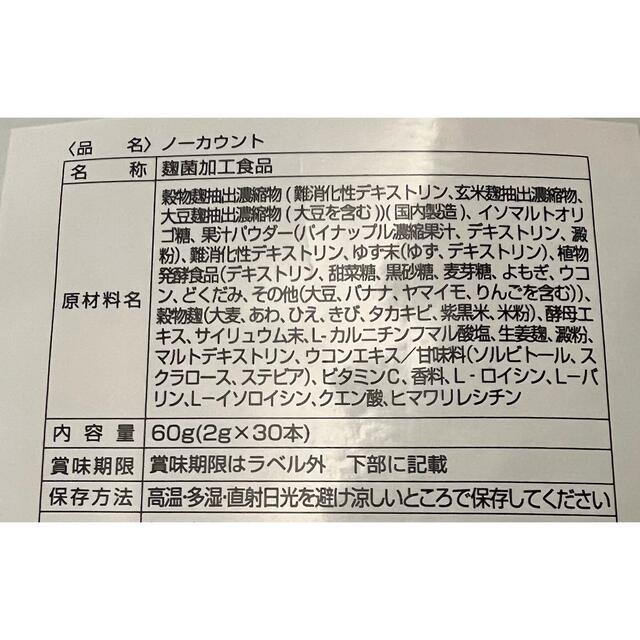 〈品　名〉ノーカウント
名　称　麹菌加工食品
原材料名
穀物麹抽出濃縮物(難消化性デキストリン、玄米麹抽出濃縮物、
大豆麹抽出濃縮物(大豆を含む))(国内製造)、イソマルトオリ
ゴ糖、果汁パウダー(パイナップル濃縮果汁、デキストリン、澱
粉)、難消化性デキストリン、ゆず末(ゆず、デキストリン)、植物
発酵食品(デキストリン、甜菜糖、黒砂糖、麦芽糖、よもぎ、ウコ
ン、どくだみ、その他(大豆、バナナ、ヤマイモ、りんごを含む))、
穀物麹(大麦、あわ、ひえ、きび、タカキビ、紫黒米、米粉)、酵母エ
キス、サイリュウム末、L-カルニチンフマル酸塩、生姜麹、澱粉、
マルトデキストリン、ウコンエキス／甘味料(ソルビトール、ス
クラロース、ステビア)、ビタミンC、香料、L-ロイシン、L-バ
リン、L-イソロイシン、クエン酸、ヒマワリレシチン
内容量　60g(2g×30本)
賞味期限　賞味期限はラベル外　下部に記載
保存方法　高温・多湿・直射日光を避け涼しいところで保存してください